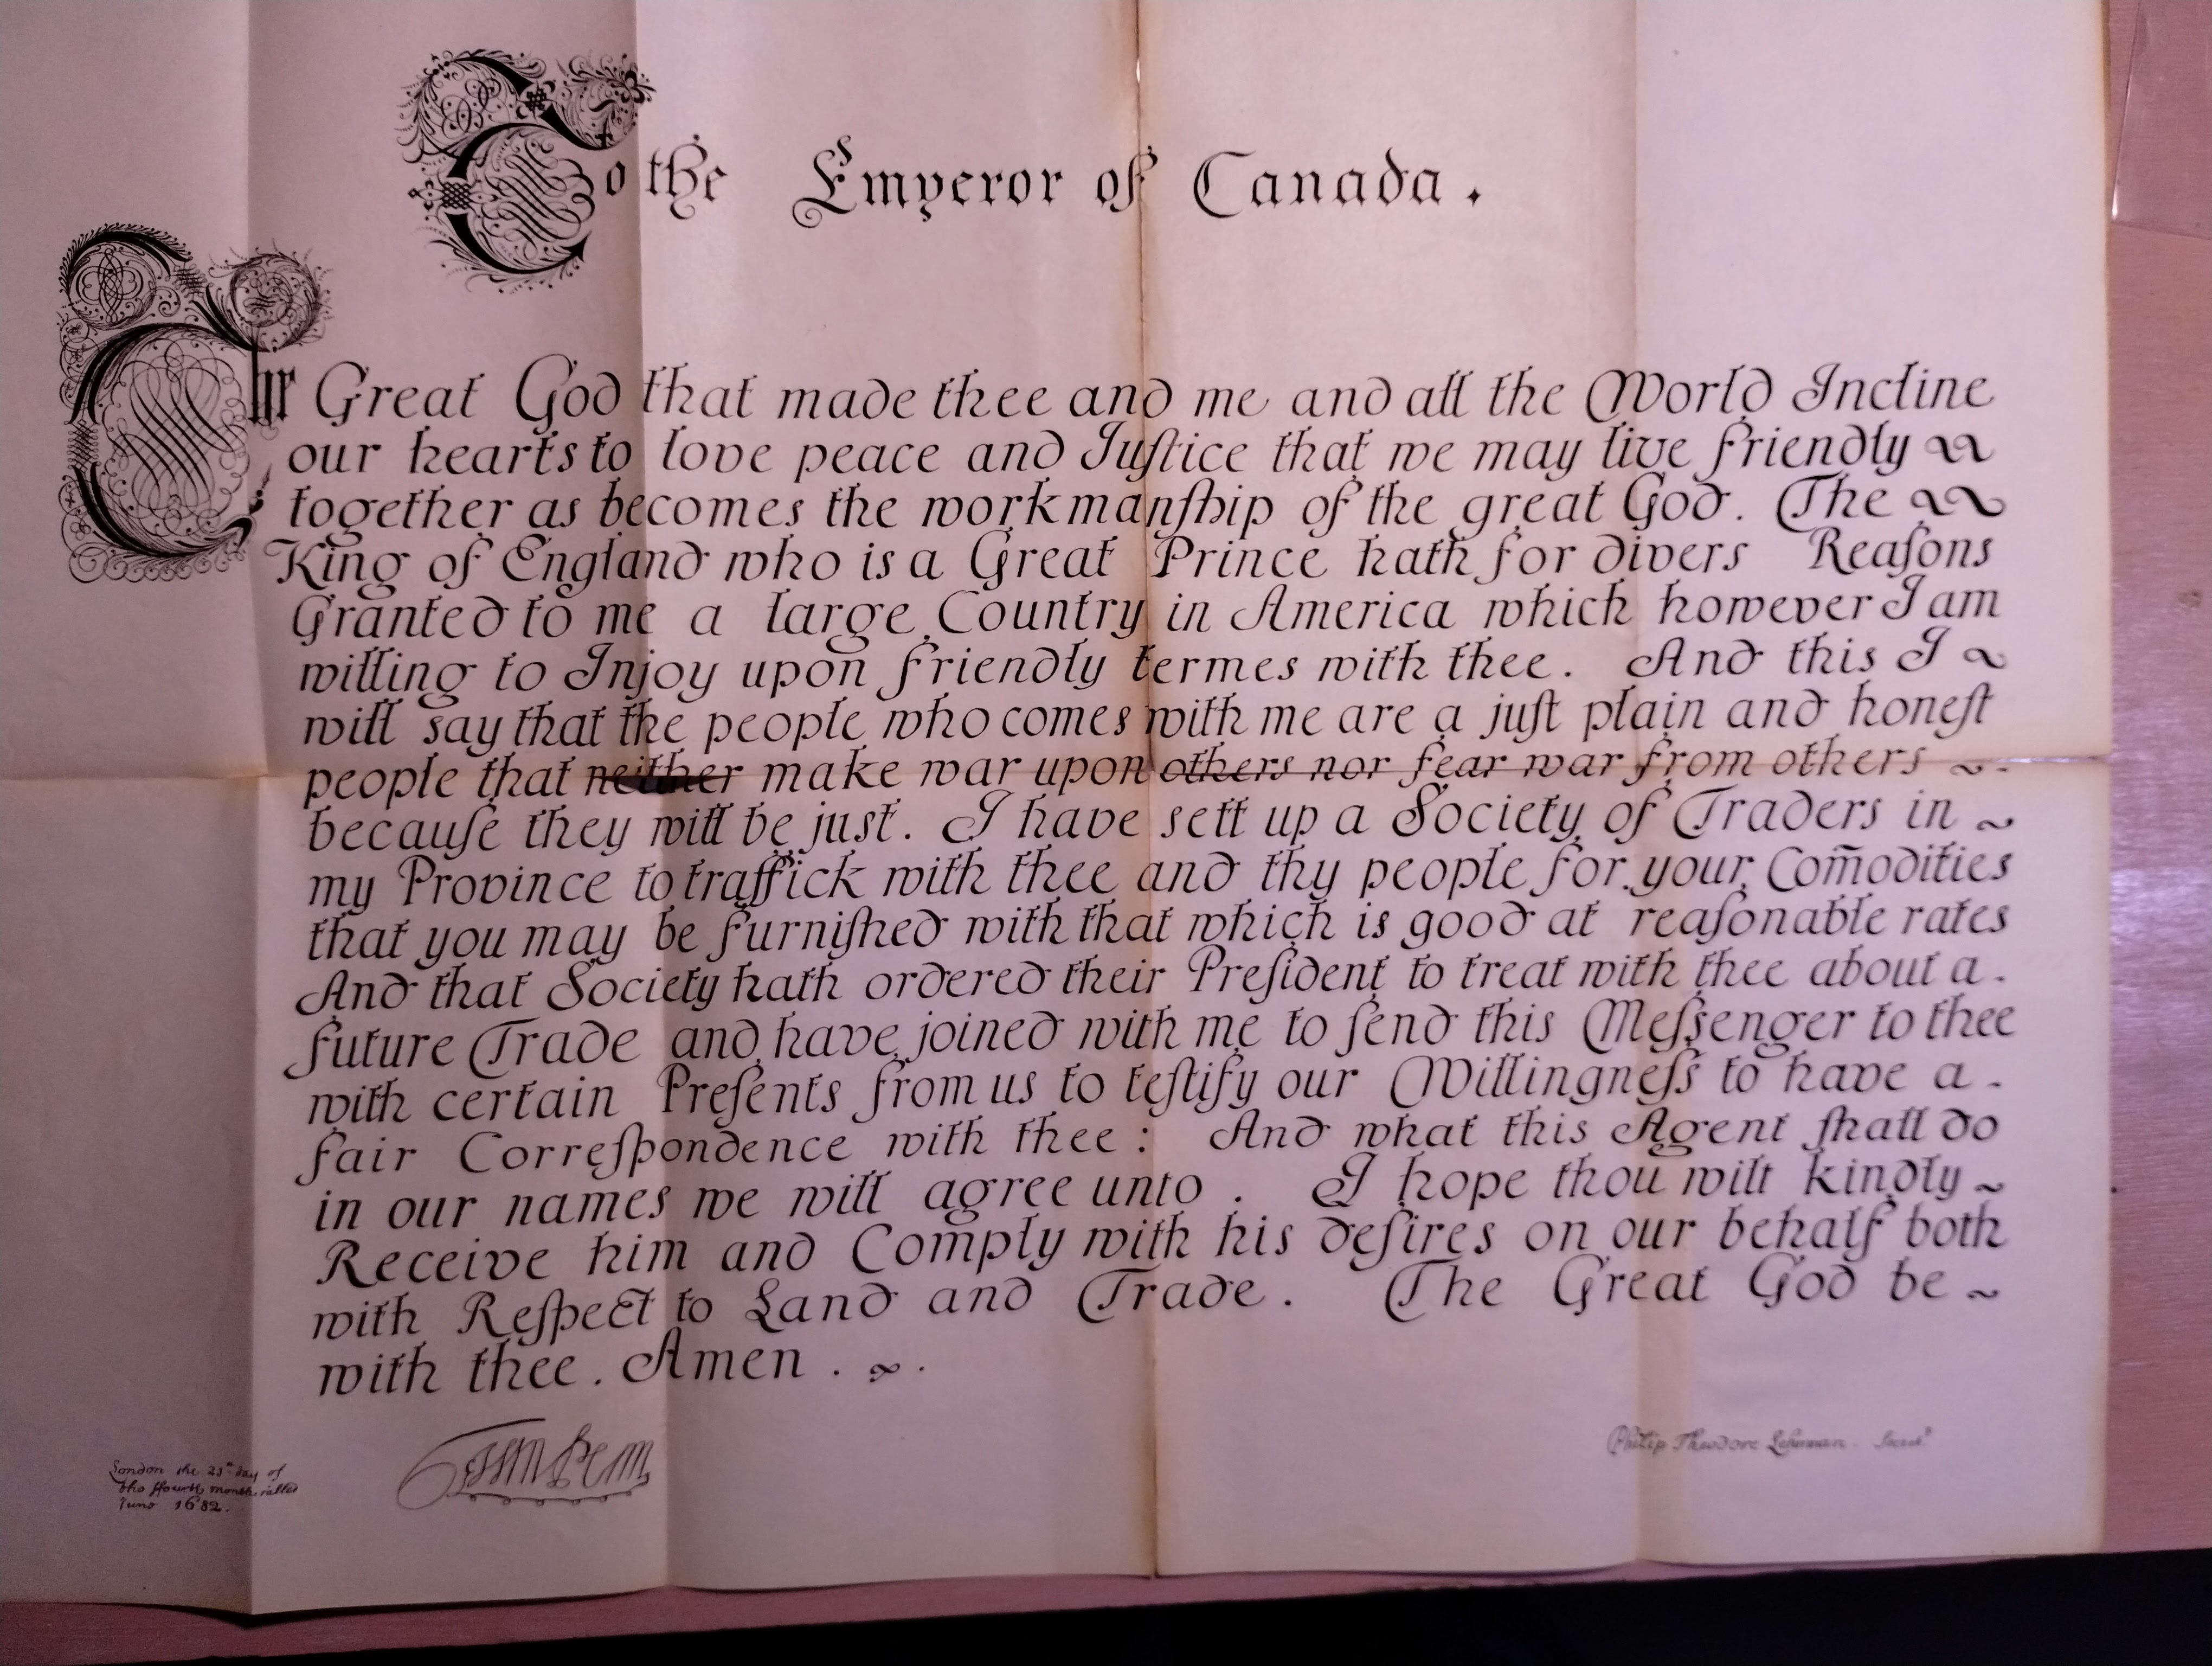 To the Emperor of Canada.
The Great God that made thee and me and all the World Incline
our hearts to love peace and Juſtice that we may live friendly
together as becomes the workmanſhip of the great God. The
King of England who is a Great Prince hath for divers Reaſons
Granted to me a large Country in America which however I am
willing to Injoy upon friendly termes with thee. And this I
will say that the people who comes with me are a juſt plain and honeſt
people that neither make war upon others nor fear war from others
becauſe they will be just. I have sett up a Society of Traders in
my Province to traffick with thee and thy people for your Com̄odities
that you may be furniſhed with that which is good at reaſonable rates
And that Society hath ordered their Preſident to treat with thee about a.
future Trade and have joined with me to ſend this Meſsenger to thee
with certain Preſents from us to teſtify our Willingneſs to have a.
fair Correſpondence with thee: And what this Agent ſhall do
in our names we will agree unto. I hope thou wilt kindly
Receive him and Comply with his deſires on our behalf both
with Reſpect to Land and Trade. The Great God be
with thee. Amen.
Wm Penn
London the 21th day of
the ffourth month called
June 1682.
Philip Theodore Lehnman. Secret: